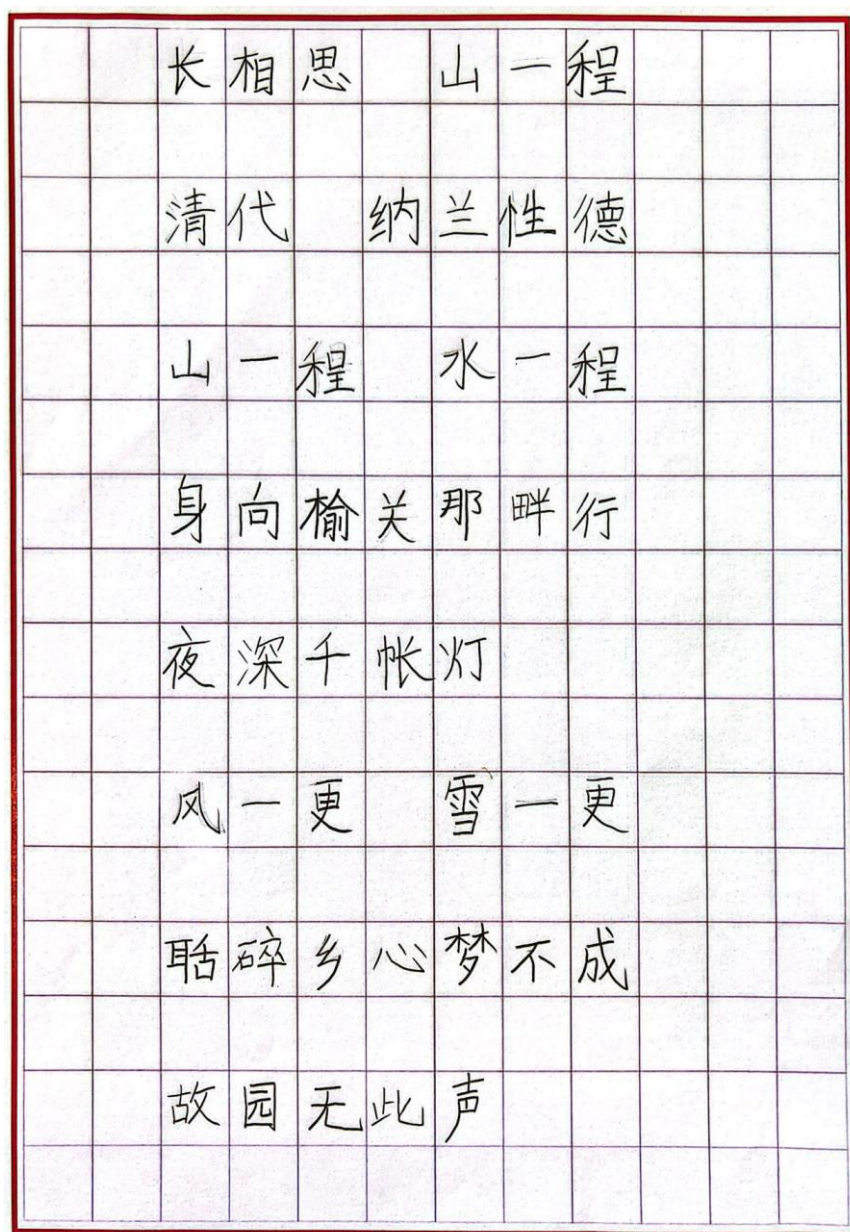 长相思 山一程
清代 纳兰性德
山一程 水一程
身向榆关那畔行
夜深千帐灯
风一更 雪一更
聒碎乡心梦不成
故园无此声